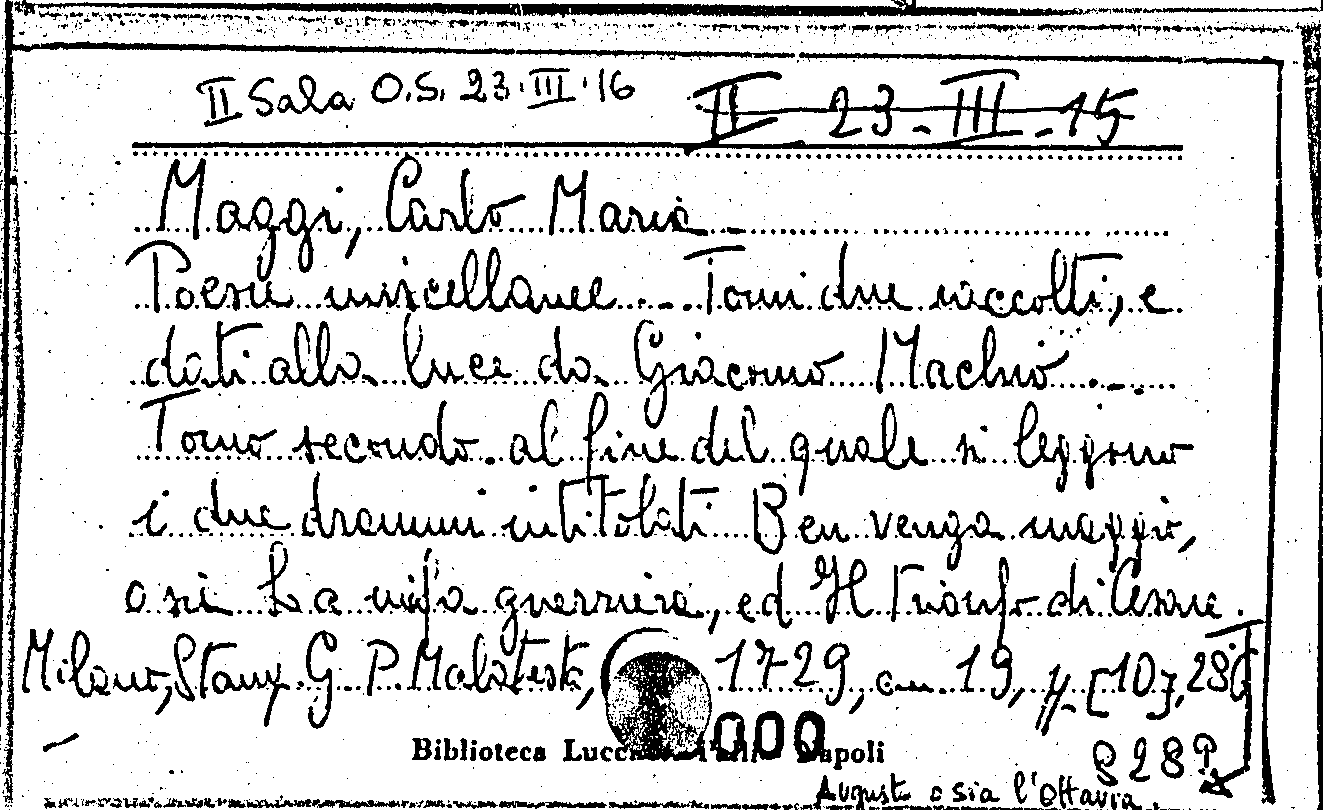 II Sala O.S. 23.III.16 II 23-III-15
Maggi, Carlo Maria -
Poesie miscellanee .- Tomi due raccolti, e
dati alla luce da Giacomo Machio .-.
Tomo secondo. al fine del quale si leggono
i due drammi intitolati Ben venga maggio,
o sii La nifa guerriera, ed Il Trionfo di Cesare.
Milano, Stamp. G. P. Malatesta, 1729, cm. 19, pp. [10], 286
000
Biblioteca Napoli
Augusto o sia l'Ottavia